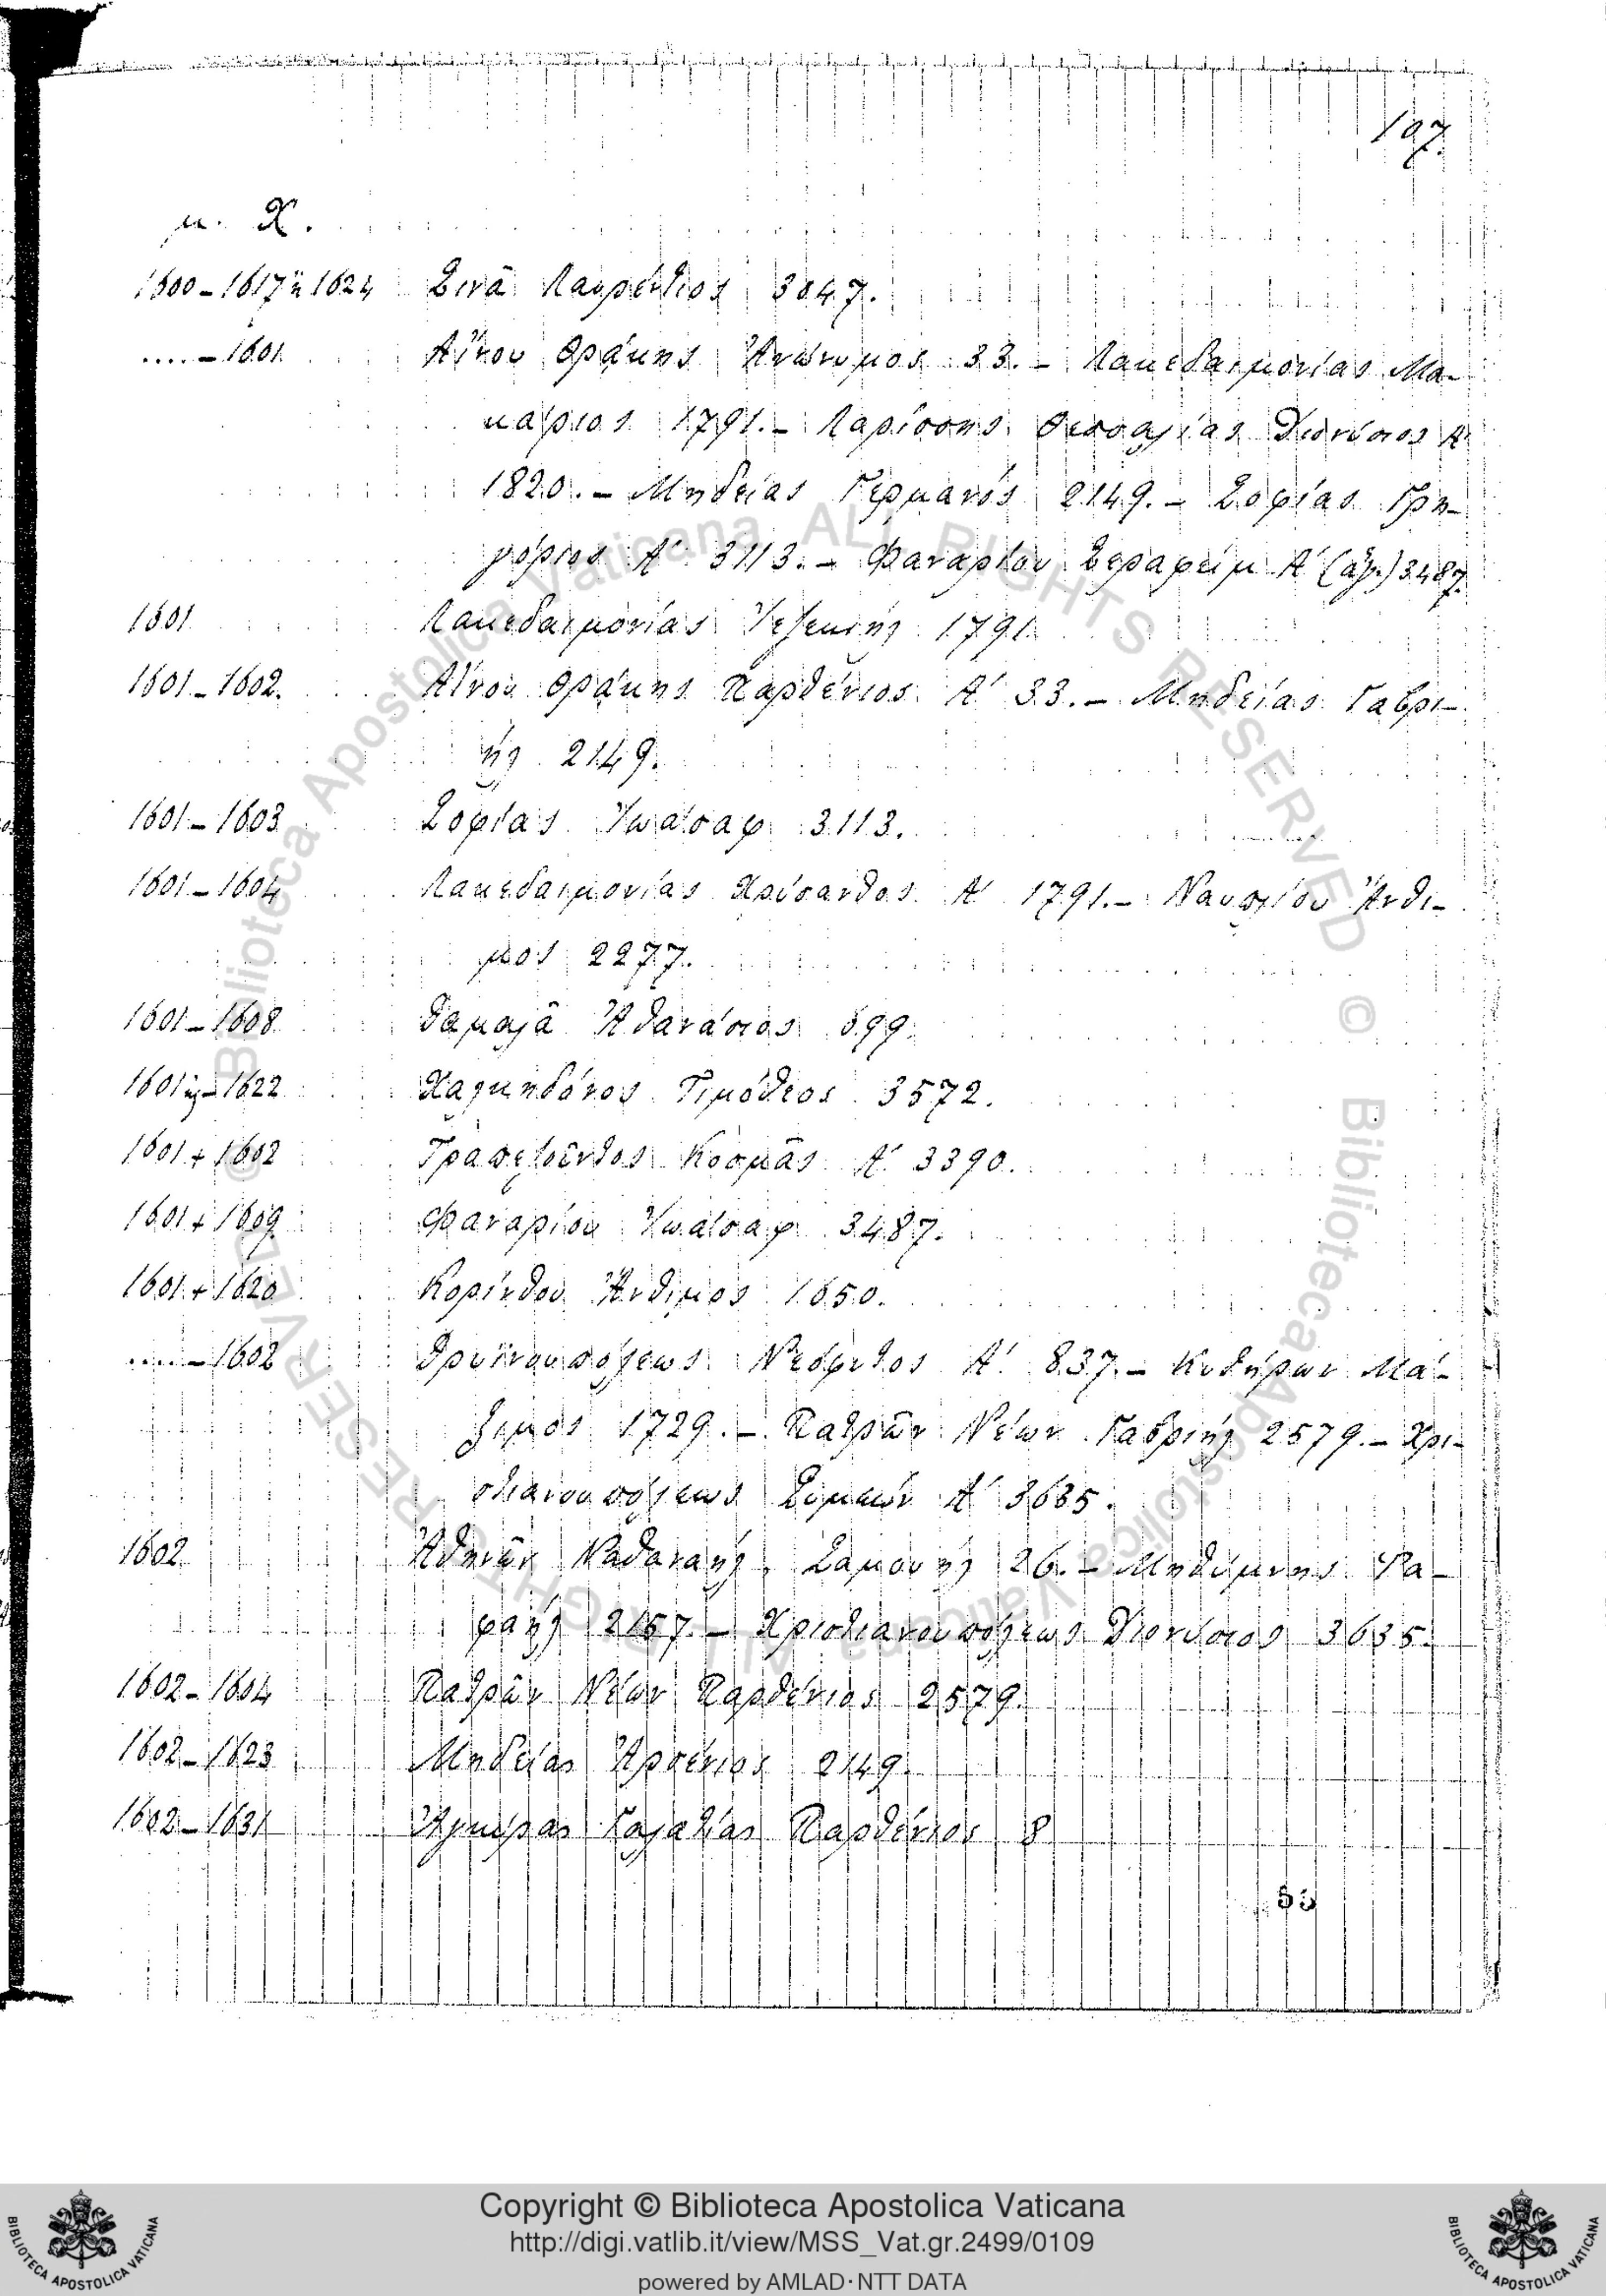 107.
μ. Χ.
1600 - 1617 ἢ 1624 Σινᾶ Λαυρέντιος 3047.
.... - 1601 Αἴνου Θρᾴκης Ἀνώνυμος 33. - Λακεδαιμονίας Μα-
κάριος 1791. - Λαρίσσης Θεσσαλίας Διονύσιος Α΄
1820. - Μηδείας Γερμανός 2149. - Σοφίας Γρη-
γόριος Α΄ 3113. - Φαναρίου Σεραφείμ Α΄ (ἅγ.) 3487.
1601 Λακεδαιμονίας Ἰεζεκιήλ 1791.
1601 - 1602. Αἴνου Θρᾴκης Παρθένιος Α΄ 33. - Μηδείας Γαβρι-
ήλ 2149.
1601 - 1603 Σοφίας Ἰωάσαφ 3113.
1601 - 1604 Λακεδαιμονίας Χρύσανθος Α΄ 1791. - Ναυπλίου Ἄνθι-
μος 2277.
1601 - 1608 Δαμαλᾶ Ἀθανάσιος 699.
1601 - 1622 Χαλκηδόνος Τιμόθεος 3572.
1601 + 1602 Τραπεζοῦντος Κοσμᾶς Α΄ 3390.
1601 + 1609 Φαναρίου Ἰωάσαφ 3487.
1601 + 1620 Κορίνθου Ἄνθιμος 1650.
.... - 1602 Δρυϊνουπόλεως Νεόφυτος Α΄ 837. - Κυθήρων Μά-
ξιμος 1729. - Πατρῶν Νέων Γαβριήλ 2579. - Χρι-
στιανουπόλεως Συμεών Α΄ 3635.
1602 Ἀθηνῶν Ναθαναήλ, Σαμουήλ 26. - Μηθύμνης Ρα-
φαήλ 2157. - Χριστιανουπόλεως Διονύσιος 3635.
1602 - 1604 Πατρῶν Νέων Παρθένιος 2579.
1602 - 1623 Μηδείας Ἀρσένιος 2149.
1602 - 1631 Ἀγκύρας Γαλατίας Παρθένιος 8
© Biblioteca Apostolica Vaticana ALL RIGHTS RESERVED © Biblioteca Apostolica Vaticana ALL RIGHTS RESERVED
BIBLIOTECA APOSTOLICA VATICANA
Copyright © Biblioteca Apostolica Vaticana
http://digi.vatlib.it/view/MSS_Vat.gr.2499/0109
powered by AMLAD·NTT DATA
BIBLIOTECA APOSTOLICA VATICANA